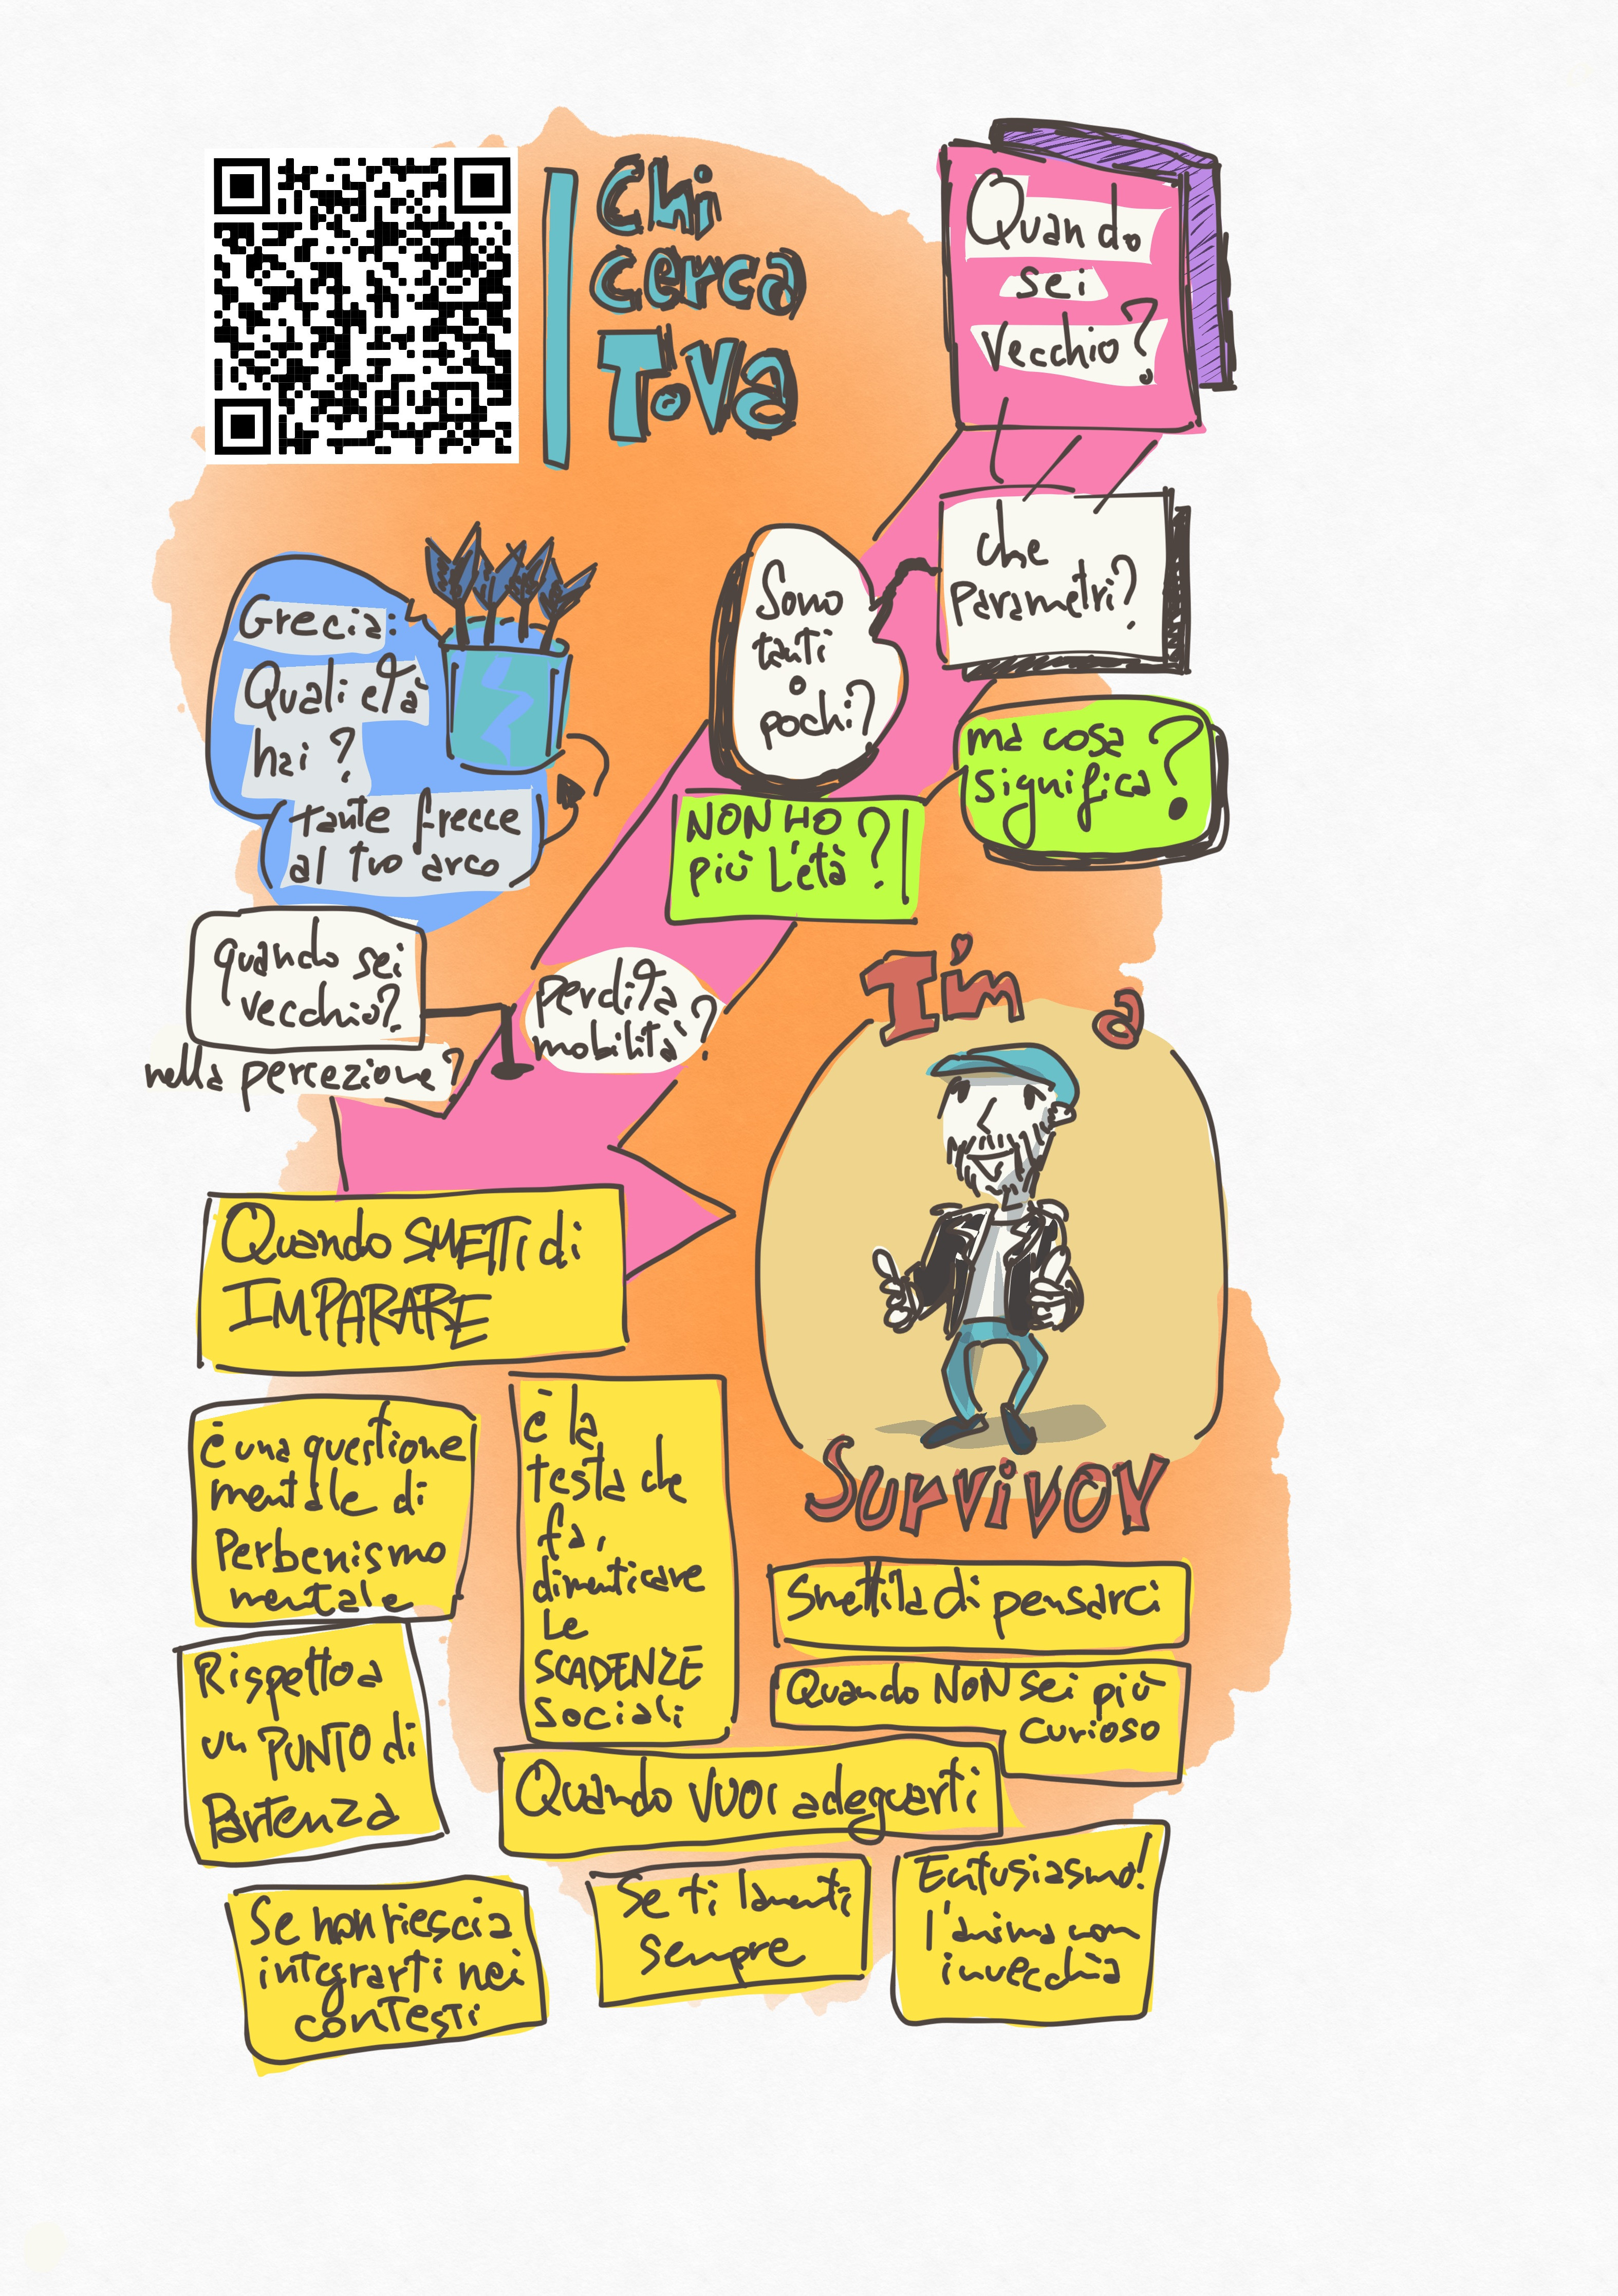 Chi
cerca
ToVa
Quando
sei
Vecchio?
che
Parametri?
Sono
tanti
o
pochi?
ma cosa
significa?
NON HO
più L'età?
Grecia:
Quali età
hai?
(tante frecce
al tuo arco)
quando sei
vecchio?
nella percezione?
perdita
mobilità?
I'm a
Survivor
Quando SMETTi di
IMPARARE
è una questione
mentale di
Perbenismo
mentale
è la
testa che
fa,
dimenticare
Le
SCADENZE
Sociali
Rispetto a
un PUNTO di
Partenza
Smettila di pensarci
Quando NON sei più
curioso
Quando VUOI adeguarti
Se non riesci a
integrarti nei
contesti
Se ti lamenti
sempre
Entusiasmo!
l'anima non
invecchia